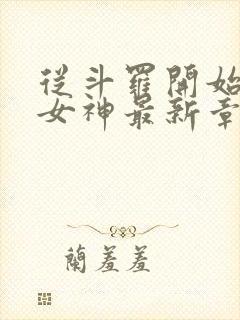 從斗羅開始
女神最新章
蘭羞羞